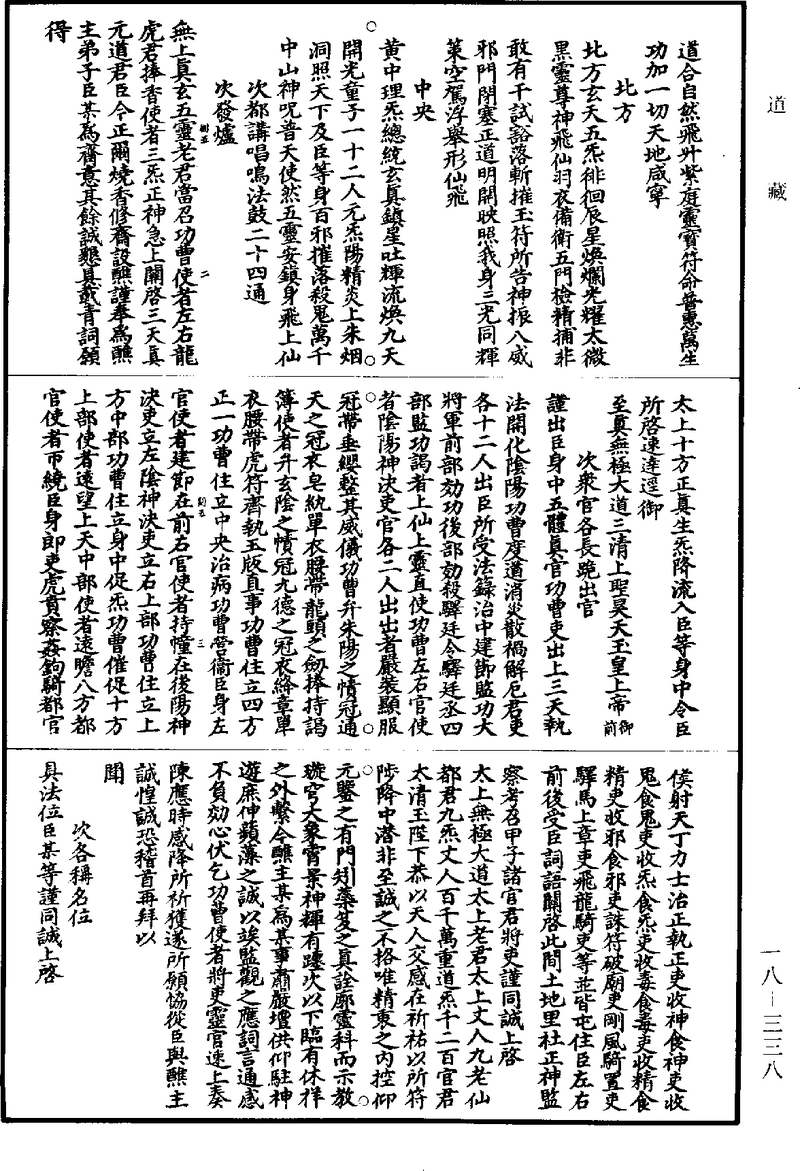 道藏
道合自然飛升紫庭靈寶符命普惠萬生
功加一切天地咸寧
北方
北方玄天五炁徘徊辰星煥爛光耀太微
黑靈尊神飛仙羽衣備衛五門檢精捕非
敢有干試豁落斬摧玉符所告神振八威
邪門閉塞正道明開映照我身三光同輝
策空駕浮舉形仙飛
中央
黃中理炁總統玄真鎮星吐輝流煥九天
開光童子一十二人元炁陽精炎上朱烟
洞照天下及臣等身百邪摧落殺鬼萬千
中山神呪普天使然五靈安鎮身飛上仙
次都講唱鳴法鼓二十四通
次發爐
無上真玄五靈老君當召功曹使者左右龍
虎君捧香使者三炁正神急上關啓三天真
元道君臣今正爾燒香修齋設醮謹奉為醮
主弟子臣某為齋意其餘誠懇具載青詞願
得
太上十方正真生炁降流入臣等身中令臣
所啓速達逕御
至真無極大道三清上聖昊天玉皇上帝御前
次衆官各長跪出官
謹出臣身中五體真官功曹吏出上三天執
法開化陰陽功曹度道消災散禍解厄君吏
各十二人出臣所受法籙治中建節監功大
將軍前部効功後部効殺驛廷令驛廷丞四
部監功謁者上仙上靈直使功曹左右官使
者陰陽神決吏官各二人出出者嚴裝顯服
冠帶垂纓整其威儀功曹升朱陽之幘冠通
天之冠衣皂紈單衣腰帶龍頭之劒捧持謁
簿使者升玄陰之幘冠九德之冠衣絳章單
衣腰帶虎符齎執玉版直事功曹住立四方
正一功曹住立中央治病功曹營衞臣身左
官使者建節在前右官使者持幢在後陽神
決吏立左陰神決吏立右上部功曹住立上
方中部功曹住立身中促炁功曹催促十方
上部使者遠望上天中部使者遠瞻八方都
官使者帀繞臣身郎吏虎賁察姦鉤騎都官
僕射天丁力士治正執正吏收神食神吏收
鬼食鬼吏收炁食炁吏收毒食毒吏收精食
精吏收邪食邪吏誅符破廟吏剛風騎置吏
驛馬上章吏飛龍騎吏等並皆屯住臣左右
前後受臣詞語關啓此間土地里社正神監
察考召甲子諸官君將吏謹同誠上啓
太上無極大道太上老君太上丈人九老仙
都君九炁丈人百千萬重道炁千二百官君
太清玉陛下恭以天人交感在祈祐以所符
陟降中潛非至誠之不格唯精衷之内控仰
元鑒之有門矧蘂笈之真詮廓靈科而示教
璇穹大象霄景神輝有躔次以下臨有休祥
之外繫今醮主某為某事肅嚴壇供仰駐神
遊庶伸蘋藻之誠以竢監觀之應詞言通感
不負効心伏乞功曹使者將吏靈官速上奏
陳應時感降所祈獲遂所願協從臣與醮主
誠惶誠恐稽首再拜以
聞
次各稱名位
具法位臣某等謹同誠上啓
一八－三三八